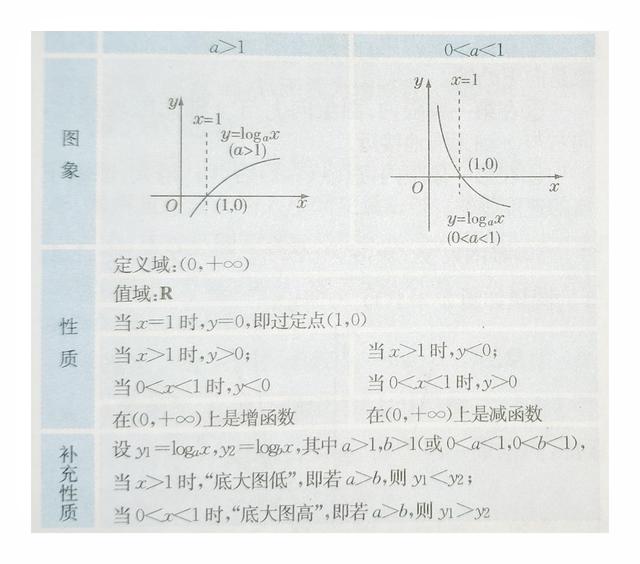 a>1
0<a<1
图象
y
x=1
y=logₐx
(a>1)
O
(1,0)
x
y
x=1
(1,0)
O
x
y=logₐx
(0<a<1)
性质
定义域:(0,+∞)
值域:R
当x=1时,y=0,即过定点(1,0)
当x>1时,y>0;
当x>1时,y<0;
当0<x<1时,y<0
当0<x<1时,y>0
在(0,+∞)上是增函数
在(0,+∞)上是减函数
补充性质
设y₁=logₐx,y₂=log_bx,其中a>1,b>1(或0<a<1,0<b<1),
当x>1时,“底大图低”,即若a>b,则y₁<y₂;
当0<x<1时,“底大图高”,即若a>b,则y₁>y₂